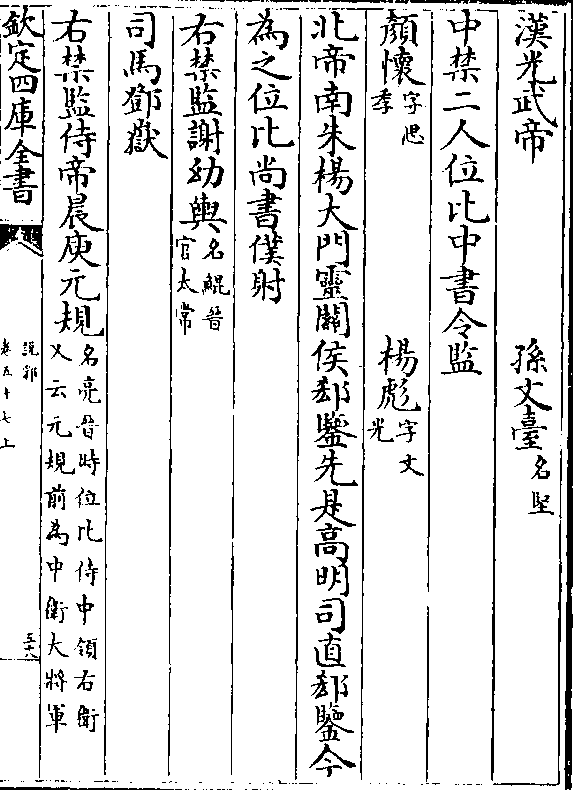 漢光武帝　孫文臺名堅
中禁二人位比中書令監
顔懷字思季　楊彪字文光
北帝南朱楊大門靈關侯郄鑒先是高明司直郄鑒今
為之位比尚書僕射
右禁監謝幼輿名鯤晉官太常
司馬鄧嶽
右禁監侍帝晨庾元規名亮晉時位比侍中領右衛又云元規前為中衛大將軍
欽定四庫全書　說郛卷五十七上　五六